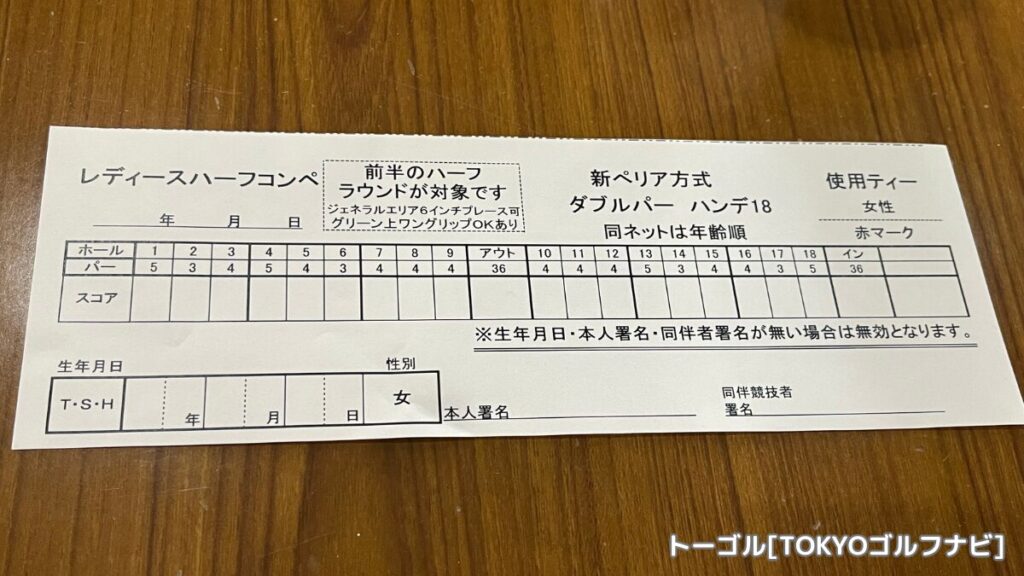 レディースハーフコンペ
年 月 日
前半のハーフ
ラウンドが対象です
ジェネラルエリア6インチプレース可
グリーン上ワングリップOKあり
新ペリア方式
ダブルパー ハンデ18
同ネットは年齢順
使用ティー
女性
赤マーク
ホール 1 2 3 4 5 6 7 8 9 アウト 10 11 12 13 14 15 16 17 18 イン
パー 5 3 4 5 4 3 4 4 4 36 4 4 4 5 3 4 4 3 5 36
スコア
※生年月日・本人署名・同伴者署名が無い場合は無効となります。
生年月日 性別
T・S・H 年 月 日 女
本人署名
同伴競技者
署名
トーゴル[TOKYOゴルフナビ]